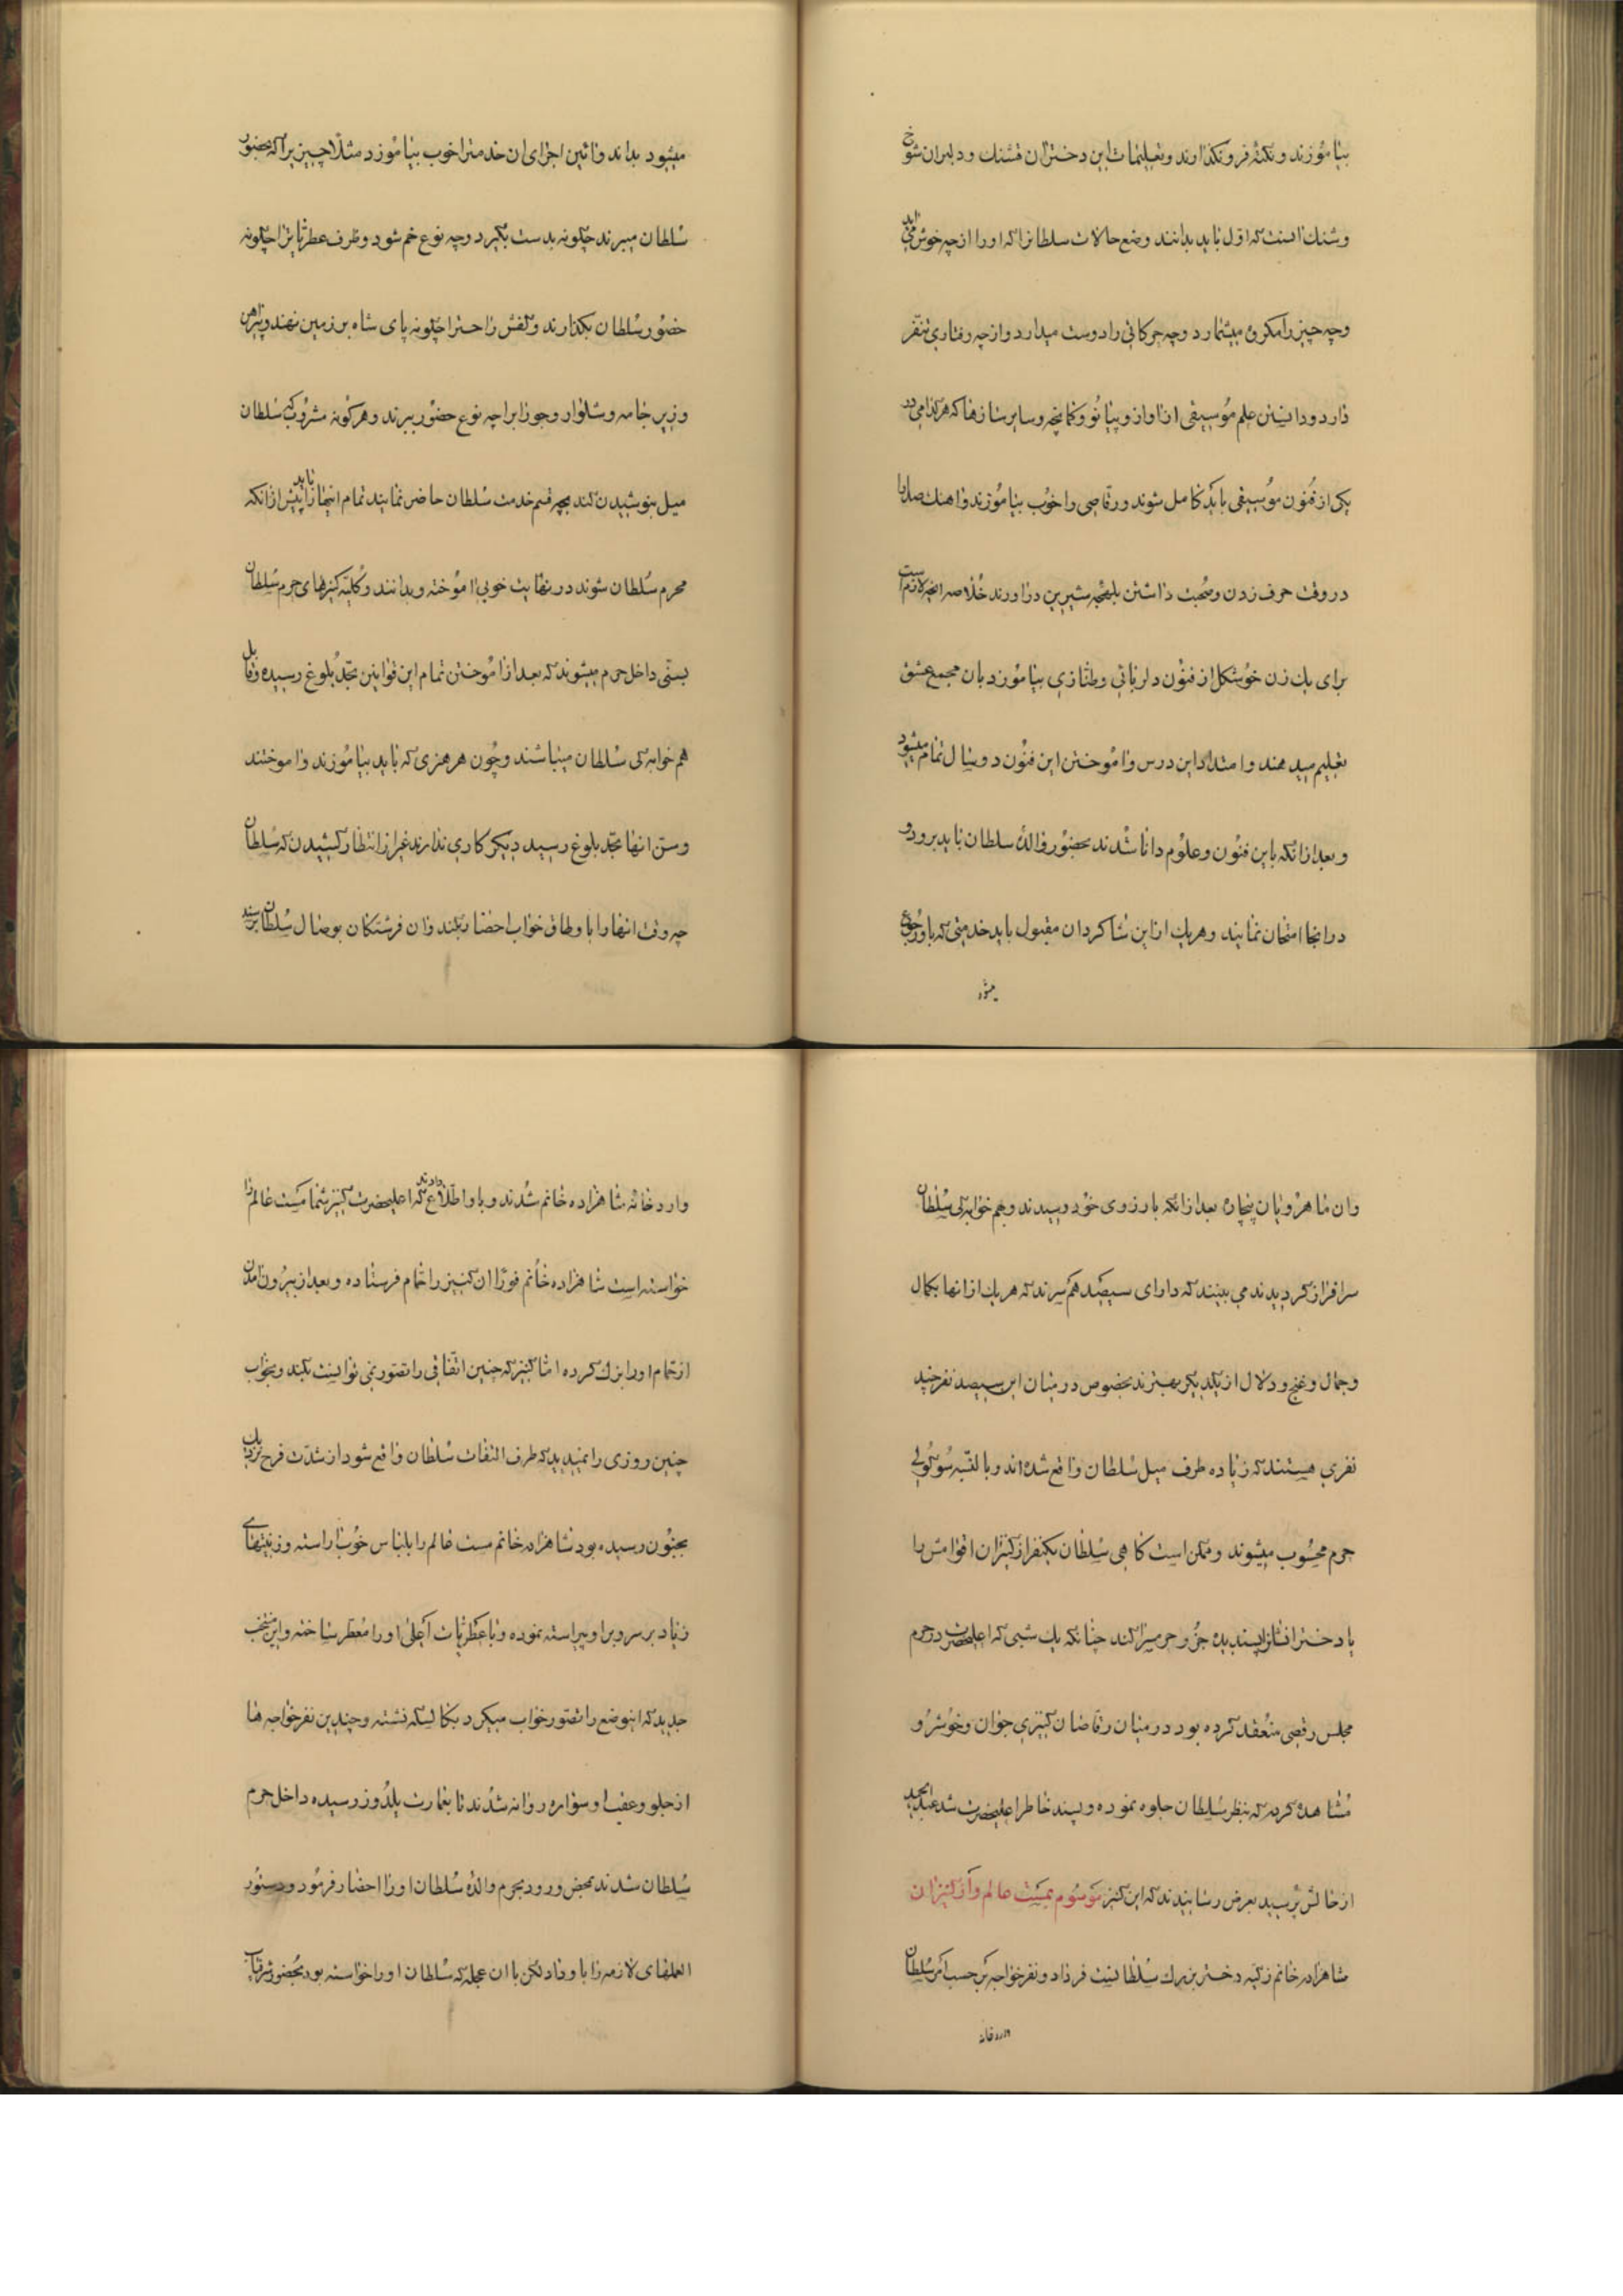 بیاموزند و نکته فرو نگذارند و تعلیمات این دختران قشنک و دلبران شوخ
وشنك اینست که اول باید بدانند وضع حالات سلطانرا که او را از چه خوش می آید
وچه چیز را مکروه میشمارد وچه حرکاتی را دوست میدارد و از چه رفتاری تنفر
دارد و دانستن علم موسیقی از اواز و پیانو و کمانچه و سایر سازها که هر کدامی در
یکی از فنون موسیقی باید کامل شوند و رقاصی را خوب بیاموزند و اهنك صدا را
در وقت حرف زدن و صحبت داشتن بلهجه شیرین در اورند خلاصه انچه لازم است
برای یك زن خوشکل از فنون دلربائی و طنازی بیاموزد بان مجمع عشق
تعلیم میدهند و امتداد این درس و اموختن این فنون دو سال تمام میشود
و بعد از انکه باین فنون و علوم دانا شدند بحضور والدۀ سلطان باید برود و
در انجا امتحان نمایند و هریك از این شاکردان مقبول باید خدمتی که باو رجوع
میشود
میشود بداند و ائین اجزای ان خدمترا خوب بیاموزد مثلا چیزیرا که بحضور
سلطان میبرند چکونه بدست بگیرد و چه نوع خم شود و ظرف عطریاترا چکونه
حضور سلطان بکذارند و کفش راحترا چکونه پای شاه بر زمین نهند و پیراهن
و زیر جامه و شلوار و جورابرا چه نوع حضور ببرند و هر کونه مشروب که سلطان
میل بنوشیدن کند بچه قسم خدمت سلطان حاضر نمایند تمام اینها را باید پیش از انکه
محرم سلطان شوند در نهایت خوبی اموخته و بدانند و کلیّه کنیزهای حرم سلطان
بسنّی داخل حرم میشوند که بعد از اموختن تمام این قوانین بحدّ بلوغ رسیده و قابل
هم خوابه کی سلطان میباشند و چون هر هنری که باید بیاموزند و اموختند
و سنّ انها بحدّ بلوغ رسید دیکر کاری ندارند غیر از انتظار کشیدن که سلطان
چه وقت انها را باوطاق خواب احضار بکند و ان فرشتکان بوصال سلطان برسند
وان ماهرویان بیچاره بعد از انکه بارزوی خود رسیدند و بهم خوابه کی سلطان
سرافراز کردیدند می بینند که دارای سیصد هم سرند که هر یك از انها بکمال
وجمال و غنج و دلال از یکدیکر بهترند بخصوص در میان این سیصد نفر چند
نفری هستند که زیاده طرف میل سلطان واقع شده اند و بالنسبه سوکولی
حرم محسوب میشوند و ممکن است کاهی سلطان یکنفر از کنیزان اقوامش را
یا دختر انشانرا پسندیده جزو حرمسرا کند چنانکه یك شبی که اعلیحضرت در حرم
مجلس رقصی منعقد کرده بود در میان رقاصان کنیزی جوان و خوشرو
مشاهده کرده که بنظر سلطان جلوه نموده و پسند خاطر اعلیحضرت شد عبدالحمید
از حالش پرسید بعرض رسانیدند که این کنیز موسوم بمست عالم و از کنیزان
شاهزاده خانم زکیه دختر بزرك سلطانست فردا دو نفر خواجه بر حسب امر سلطان
وارد خانه
وارد خانه شاهزاده خانم شدند و باو اطلاع دادند که اعلیحضرت کنیز شما مست عالم را
خواسته است شاهزاده خانم فورا ان کنیز را حمام فرستاده و بعد از بیرون امدن
از حمام او را بزك کرده امّا کنیز که چنین اتفاقی را تصور نمی توانست بکند و بخواب
چنین روزی را نمیدید که طرف التفات سلطان واقع شود از شدّت فرح نزدیك
بجنون رسیده بود شاهزاده خانم مست عالم را بلباس خوب اراسته و زینتهای
زیاد بر سر و بر او پیراسته نموده و با عطریات اعلی او را معطر ساخته و این منتخب
جدید که اینوضع را تصور خواب میکرد بکالسکه نشسته و چندین نفر خواجه ها
از جلو و عقب او سواره روانه شدند تا بعمارت یلدوز رسیده داخل حرم
سلطان شدند بمحض ورود بحرم والدۀ سلطان او را احضار فرمود و دستور
العملهای لازمه را باو داد لکن با ان عجله که سلطان او را خواسته بود بحضور شرفیاب